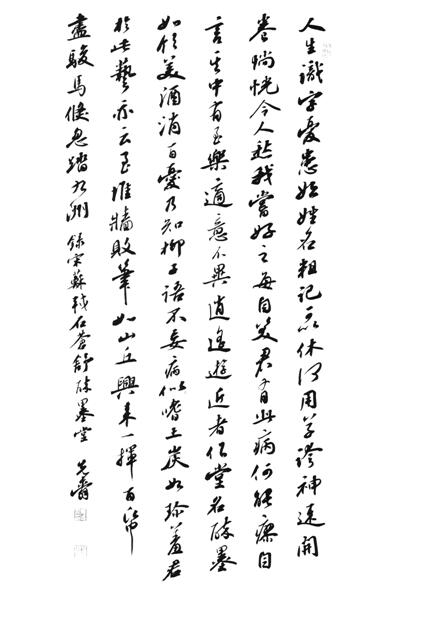 人生識字憂患始姓名粗記可以休何用草誇神速開
卷惝恍令人愁我嘗好之每自笑君有此病何能瘳自
言其中有至樂適意不異逍遙遊近者作堂名醉墨
如飲美酒消百憂乃知柳子語不妄病似嗜土炭如珍羞君
於此藝亦云至堆牆敗筆如山丘興來一揮百紙
盡駿馬倏忽踏九洲 錄宋蘇軾石蒼舒醉墨堂